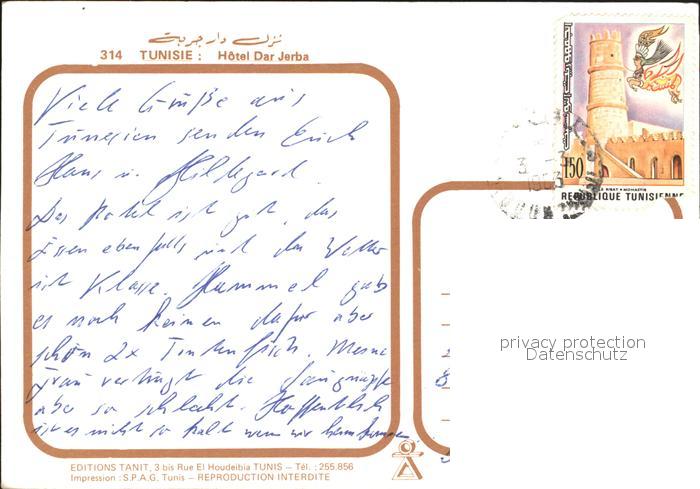 نزل دار جربة
314 TUNISIE : Hôtel Dar Jerba
Viele Grüße aus
Tunesien senden Euch
Hans u. Hildegard.
Das Hotel ist gut, das
Essen ebenfalls und das Wetter
ist Klasse. Hammel gab
es noch keinen dafür aber
schon 2x Tintenfisch. Meine
Frau verträgt die
aber so schlecht. Hoffentlich
ist es nicht so kalt wenn wir heimkommen
150
REPUBLIQUE TUNISIENNE
privacy protection
Datenschutz
EDITIONS TANIT, 3 bis Rue El Houdeibia TUNIS – Tél. : 255.856
Impression : S.P.A.G. Tunis – REPRODUCTION INTERDITE